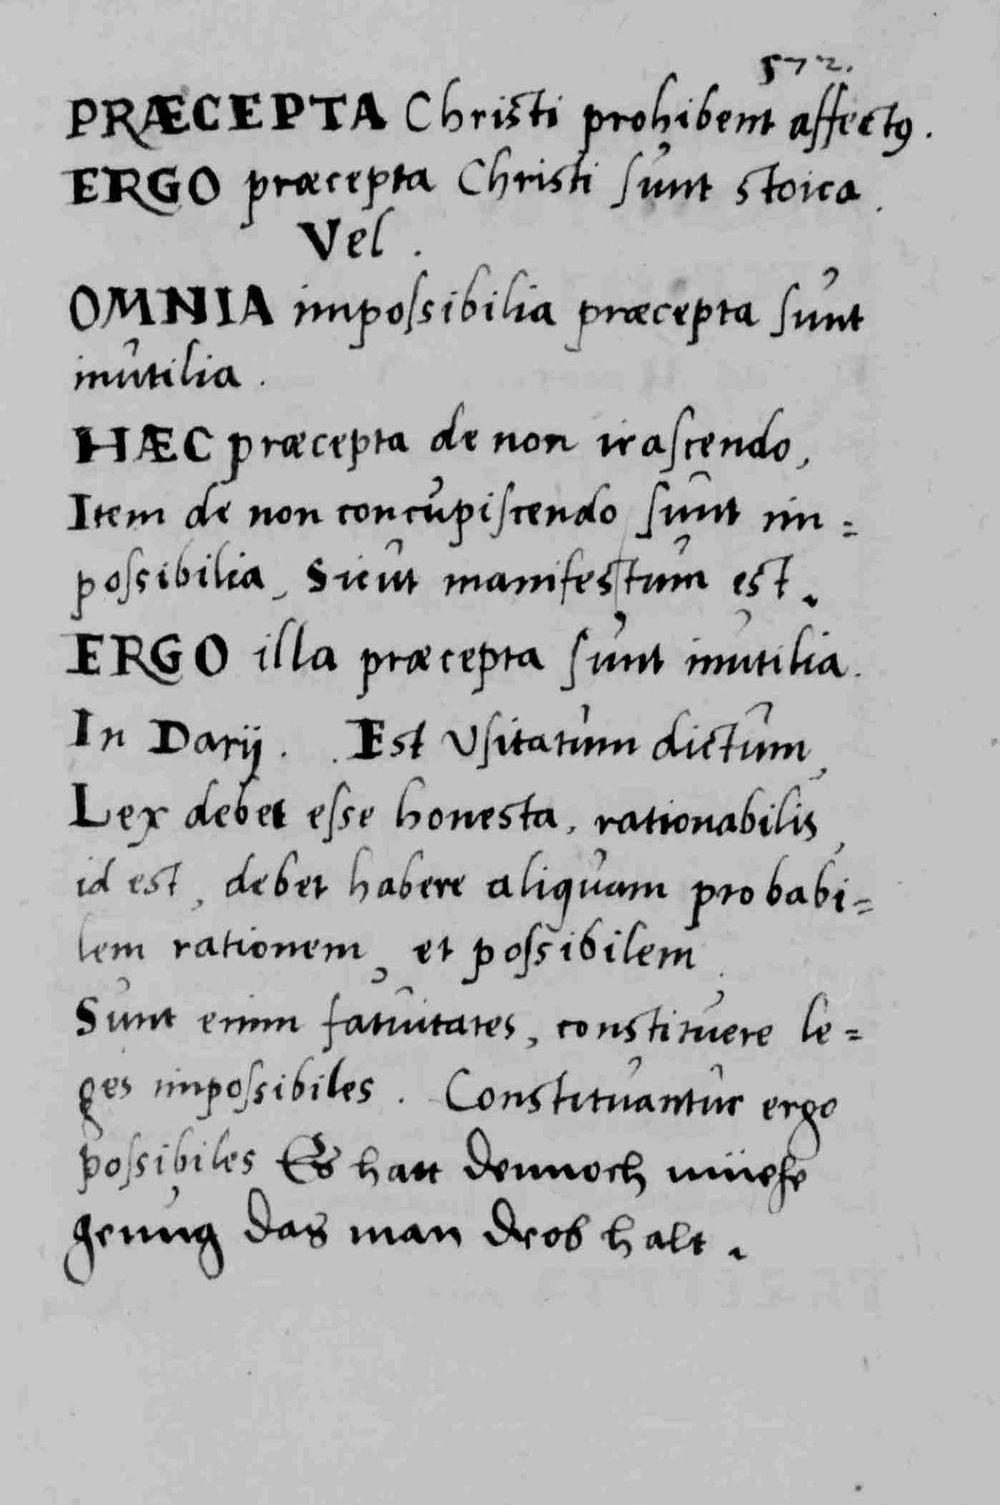 572.
PRÆCEPTA Christi prohibent affectꝰ.
ERGO præcepta Christi sunt stoica.
Vel.
OMNIA impossibilia præcepta sunt
inutilia.
HÆC præcepta de non irascendo,
Item de non concupiscendo sunt im=
possibilia, Sicut manifestum est.
ERGO illa præcepta sunt inutilia.
In Darij. Est Usitatum dictum,
Lex debet esse honesta, rationabilis,
id est, debet habere aliquam probabi=
lem rationem, et possibilem.
Sunt enim fatuitates, constituere le=
ges impossibiles. Constituantur ergo
possibiles Es hatt dennoch müehe
genug das man drob halt.